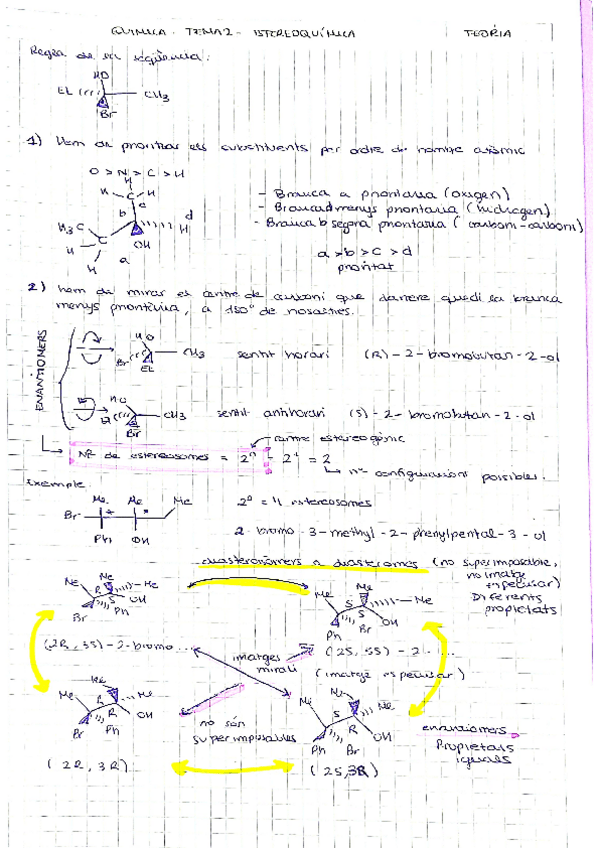 QUIMICA. TEMA 2 - ISTEREOQUÍMICA TEORIA
Regla de la seqüència:
HO
Et CH3
Br
1) Hem de prioritzar els substituents per ordre de nombre atòmic
O > N > C > H
H
H C H
b
d
H3C H
C c
H OH
H a
- Branca a prioritaria (oxigen)
- Branca d menys prioritaria (hidrogen)
- Branca b segona prioritaria (carboni-carboni)
a > b > c > d
prioritat
2) hem de mirar el centre de carboni que darrere quedi la branca
menys prioritària, a 180° de nosaltres.
ENANTIÒMERS
HO
Br CH3 sentit horari (R)-2-bromobutan-2-ol
Et
HO
Et CH3 sentit antihorari (S)-2-bromobutan-2-ol
Br
centre estereogènic
Nº de estereoisomes = 2ⁿ - 2¹ = 2
nº configuracions possibles.
Exemple.
Me Me Me
Br * *
Ph OH
2ⁿ = 4 estereoisomes
2-bromo-3-methyl-2-phenylpental-3-ol
diasteroisòmers o diasteròmes (no superimposable,
no imatge especular)
Diferents
propietats
Me Me Me
R S OH
Br Ph
Me Me Me
S S OH
Ph Br
(2R, 3S)-2-bromo... (2S, 3S)-2.....
imatges
mirall
(imatge especular)
Me Me Me
R R OH
Br Ph
no són
superimposables
Me Me Me
S R OH
Ph Br
enantiomers
Propietats
iguals
(2R, 3R) (2S, 3R)